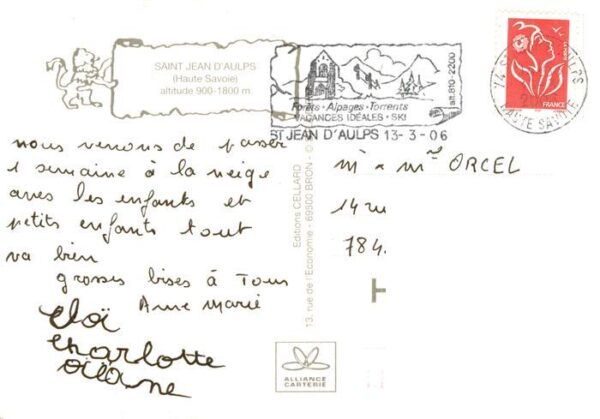 SAINT JEAN D'AULPS
(Haute Savoie)
altitude 900-1800 m
Forêts - Alpages - Torrents
VACANCES IDÉALES - SKI
alt. 810-2200
ST JEAN D'AULPS 13-3-06
HAUTE SAVOIE
FRANCE
nous venons de passer
1 semaine à la neige
avec les enfants et
petits enfants tout
va bien
grosses bises à Tous
Anne Marie
Charlotte
Editions CELLARD
13, rue de l'Economie - 69500 BRON - ©
ORCEL
14 ru
784
ALLIANCE
CARTERIE